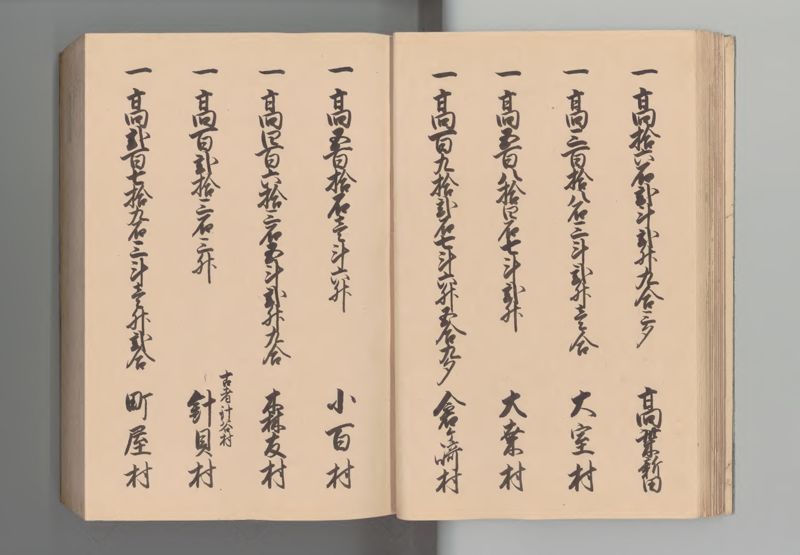 一 高拾六石弐斗弐升九合三夕 高畑新田
一 高三百拾八石三斗弐升壱合 大室村
一 高五百八拾四石七斗弐升 大桑村
一 高百九拾弐石七斗六升五合九夕 倉ヶ崎村
一 高五百拾石壱斗六升 小百村
一 高四百六拾三石五斗弐升九合 森友村
一 高百弐拾三石三升 針貝村
古者針谷村
一 高弐百七拾九石三斗壱升弐合 町屋村